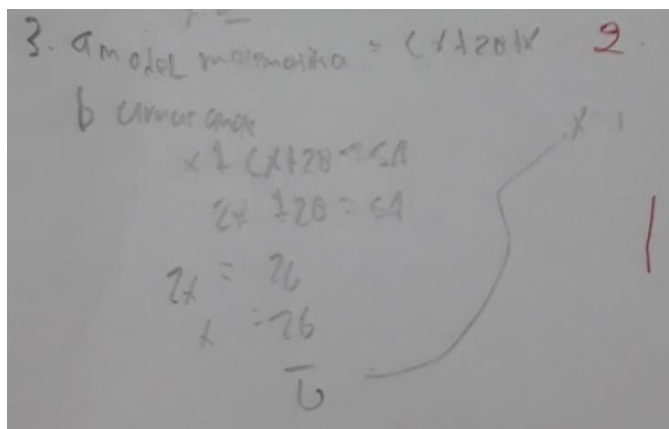 3. a model matematika = (x+28+x 2
b umur anak
x + (x+28 = 54
2x + 28 = 54
2x = 26
x = 26